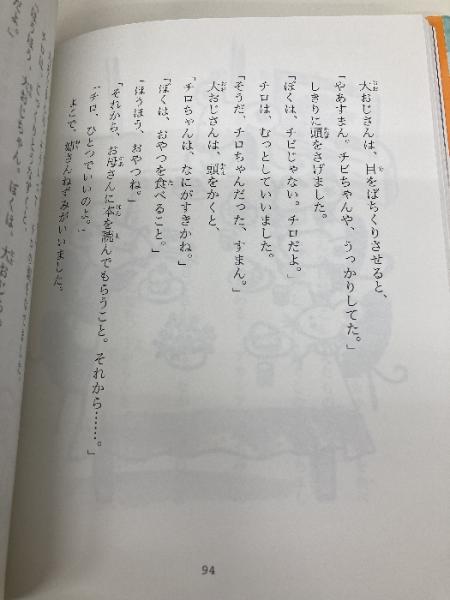 大おじさんは、目をぱちくりさせると、
「やあすまん。チビちゃんや、うっかりしてた。」
しきりに頭をさげました。
「ぼくは、チビじゃない。チロだよ。」
チロは、むっとしていいました。
「そうだ、チロちゃんだった、すまん。」
大おじさんは、頭をかくと、
「チロちゃんは、なにがすきかね。」
「ぼくは、おやつを食べること。」
「ほうほう、おやつね。」
「それから、お母さんに本を読んでもらうこと。それから……。」
「チロ、ひとつでいいのよ。」
よこで、姉さんねずみがいいました。
94